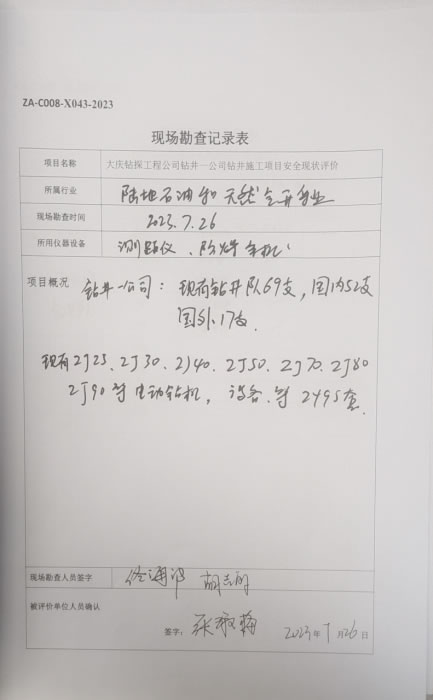 ZA-C008-X043-2023
现场勘查记录表
项目名称 大庆钻探工程公司钻井一公司钻井施工项目安全现状评价
所属行业 陆地石油和天然气开采业
现场勘查时间 2023.7.26
所用仪器设备 测距仪、防爆手机
项目概况 钻井一公司：现有钻井队69支，国内52支
国外17支.
现有ZJ25、ZJ30、ZJ40、ZJ50、ZJ70、ZJ80
ZJ90等电动钻机，设备等2495套.
现场勘查人员签字
被评价单位人员确认
签字： 2023年7月26日